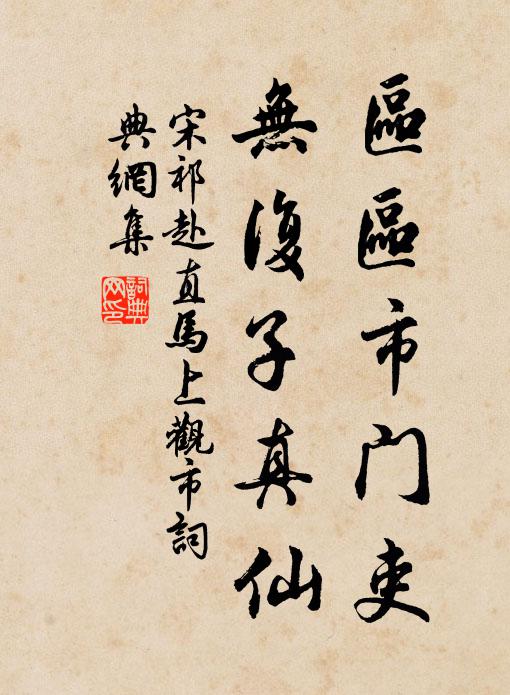 區區市門吏
無復子真仙
宋祁赴直馬上觀市詞
典網集
詞典
网印